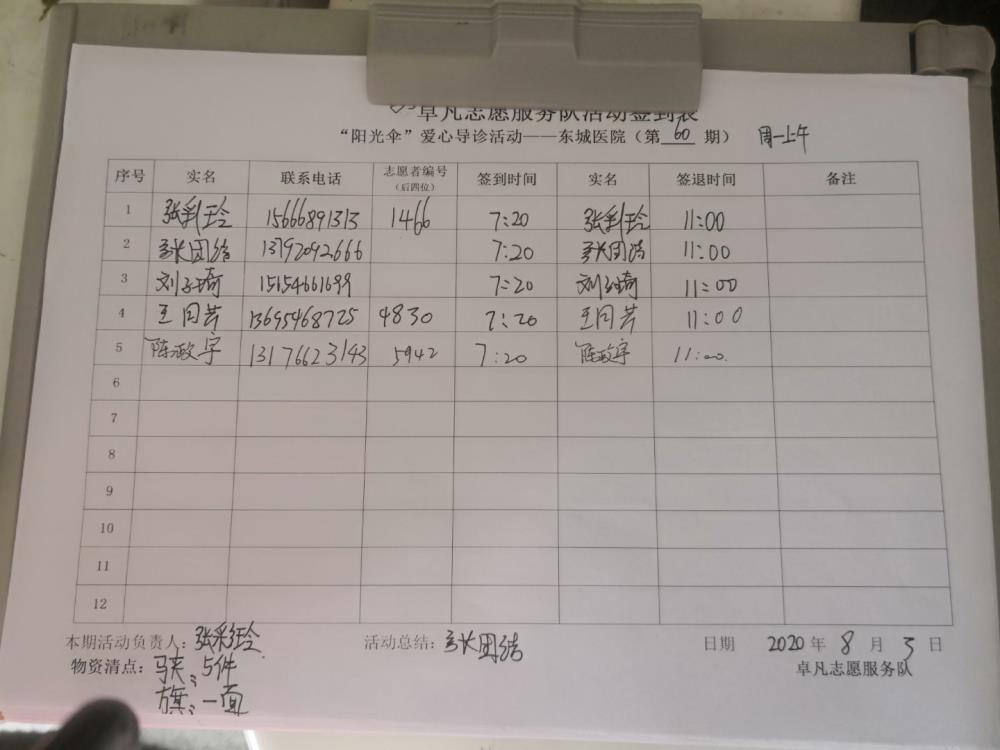 卓凡志愿服务队活动签到表
“阳光伞”爱心导诊活动——东城医院（第60期） 周一上午
序号 实名 联系电话 志愿者编号（后四位） 签到时间 实名 签退时间 备注
1 张彩玲 15666891313 1466 7:20 张彩玲 11:00
2 张团结 13792092666 7:20 张团结 11:00
3 刘子琦 15154661699 7:20 刘子琦 11:00
4 王同芸 13695468725 4830 7:20 王同芸 11:00
5 陈政宇 13176623143 5942 7:20 陈政宇 11:00
6
7
8
9
10
11
12
本期活动负责人：张彩玲 活动总结：张团结 日期 2020年8月3日
物资清点：马夹：5件 卓凡志愿服务队
旗：一面